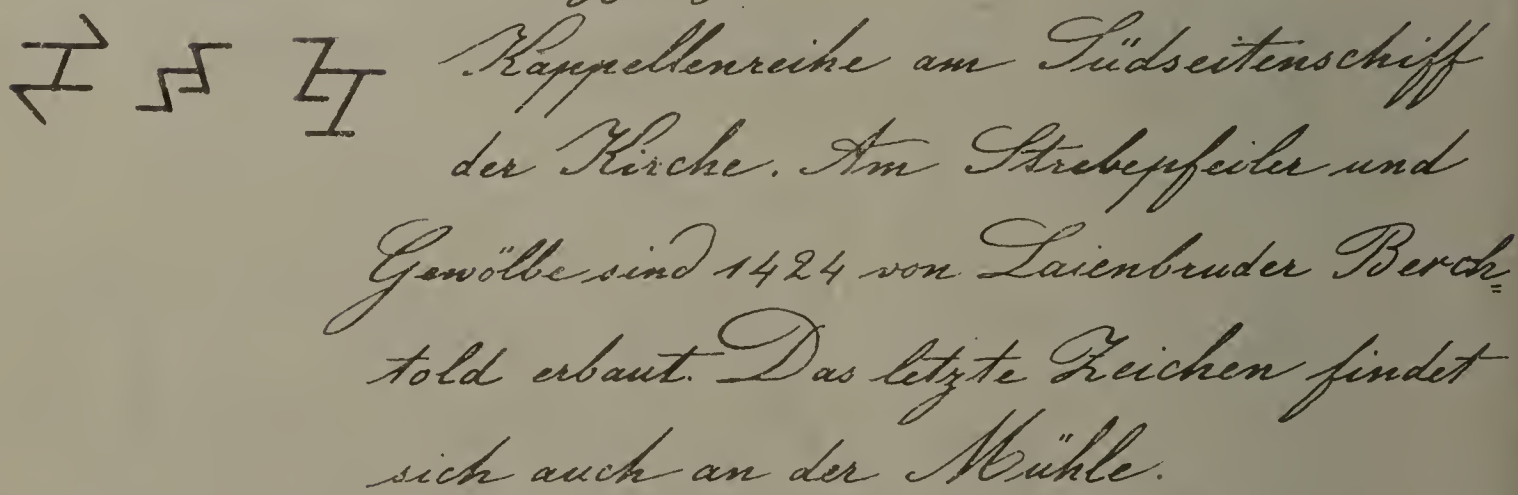 Kappellenreihe am Südseitenschiff
der Kirche. Am Strebepfeiler und
Gewölbe sind 1424 von Laienbruder Berch=
told erbaut. Das letzte Zeichen findet
sich auch an der Mühle.